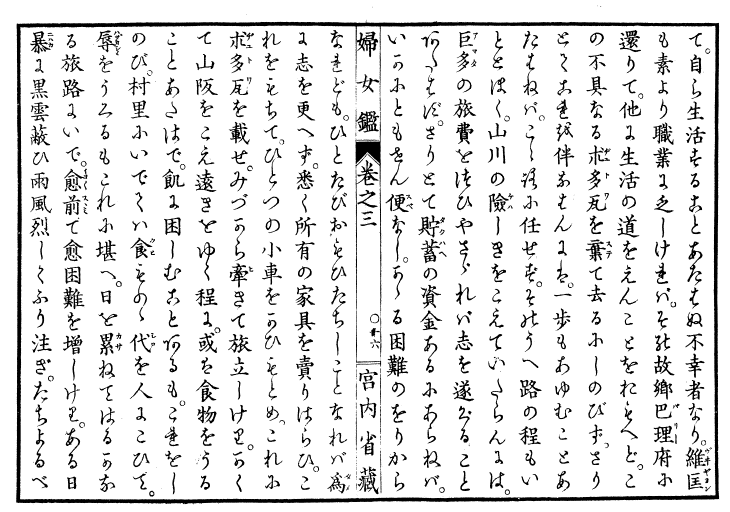 て。自ら生活することあたはぬ不幸者なり。維匡
も素より職業に乏しければ。その故郷巴理府に
還りて。他に生活の道をえんことをおもへど。こ
の不具なるボ多瓦を棄て去るにしのびず。さり
とてこれを伴なはんには。一歩もあゆむことあ
たはねば。こゝろに任せず。そのうへ路の程もい
ととほく。山川の険しきをこえていたらんには。
巨多の旅費をつひやさゞれば志を遂ぐること
あたはず。さりとて貯蓄の資金あるにあらねば。
いかにともせん便なし。かゝる困難のをりから
婦女鑑 巻之三 ○廿六 宮内省蔵
なれども。ひとたびおもひたちしことなれば為
に志を更へず。悉く所有の家具を賣りはらひ。こ
れをもちて。ひとつの小車をかひもとめ。これに
ボ多瓦を載せ。みづから牽きて旅立しけり。かく
て山阪をこえ遠きをゆく程に。或は食物をうる
ことあたはで。飢に困しむことあるも。これをし
のび。村里にいでゝは食ものゝ代を人にこひて。
辱をうくるもこれに堪へ。日を累ねてはるかな
る旅路にいで。愈前て愈困難を増しけり。ある日
暴に黒雲蔽ひ雨風烈しくふり注ぎ。たちよるべ